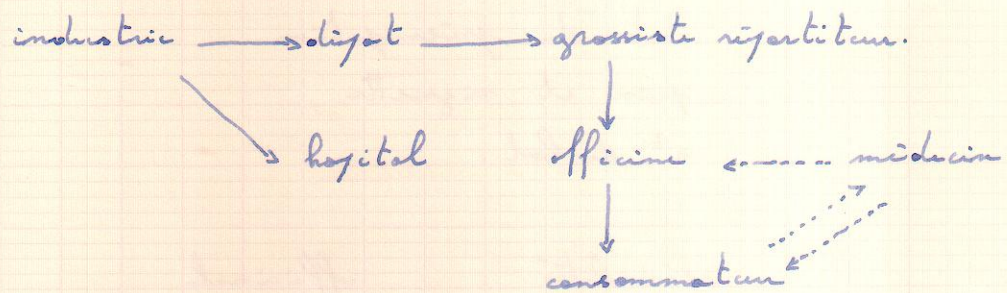 industrie dépot grossiste répartiteur.
hopital officine médecin
consommateur